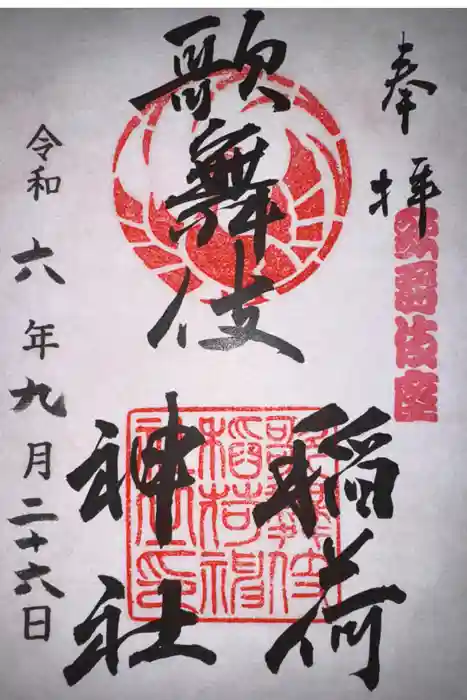 奉拝
歌舞伎座
歌舞伎
稲荷
神社
歌舞伎
稲荷神
社之印
令和六年九月二十六日